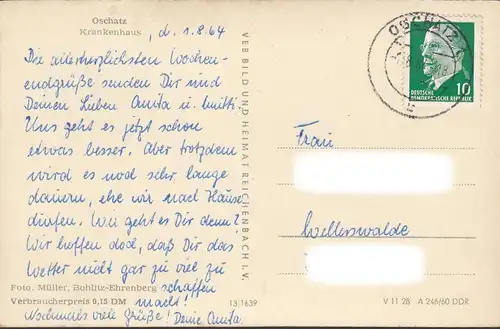 Oschatz
Krankenhaus
, d. 1.8.64
Die allerherzlichsten Wochen-
endgrüße senden Dir und
Deinen Lieben Anita u. Mutti.
Uns geht es jetzt schon
etwas besser. Aber trotzdem
wird es noch sehr lange
dauern, ehe wir nach Hause
dürfen. Wie geht es Dir denn?
Wir hoffen doch, daß Dir das
Wetter nicht gar zu viel zu
schaffen
macht!
Nochmals viele Grüße! Deine Anita.
Foto. Müller, Bohlitz-Ehrenberg
Verbraucherpreis 0,15 DM
13|1639
VEB BILD UND HEIMAT REICHENBACH I. V.
OSCHATZ
10
DEUTSCHE
DEMOKRATISCHE REPUBLIK
Frau
Wellerswalde
V 11 28 A 246/60 DDR